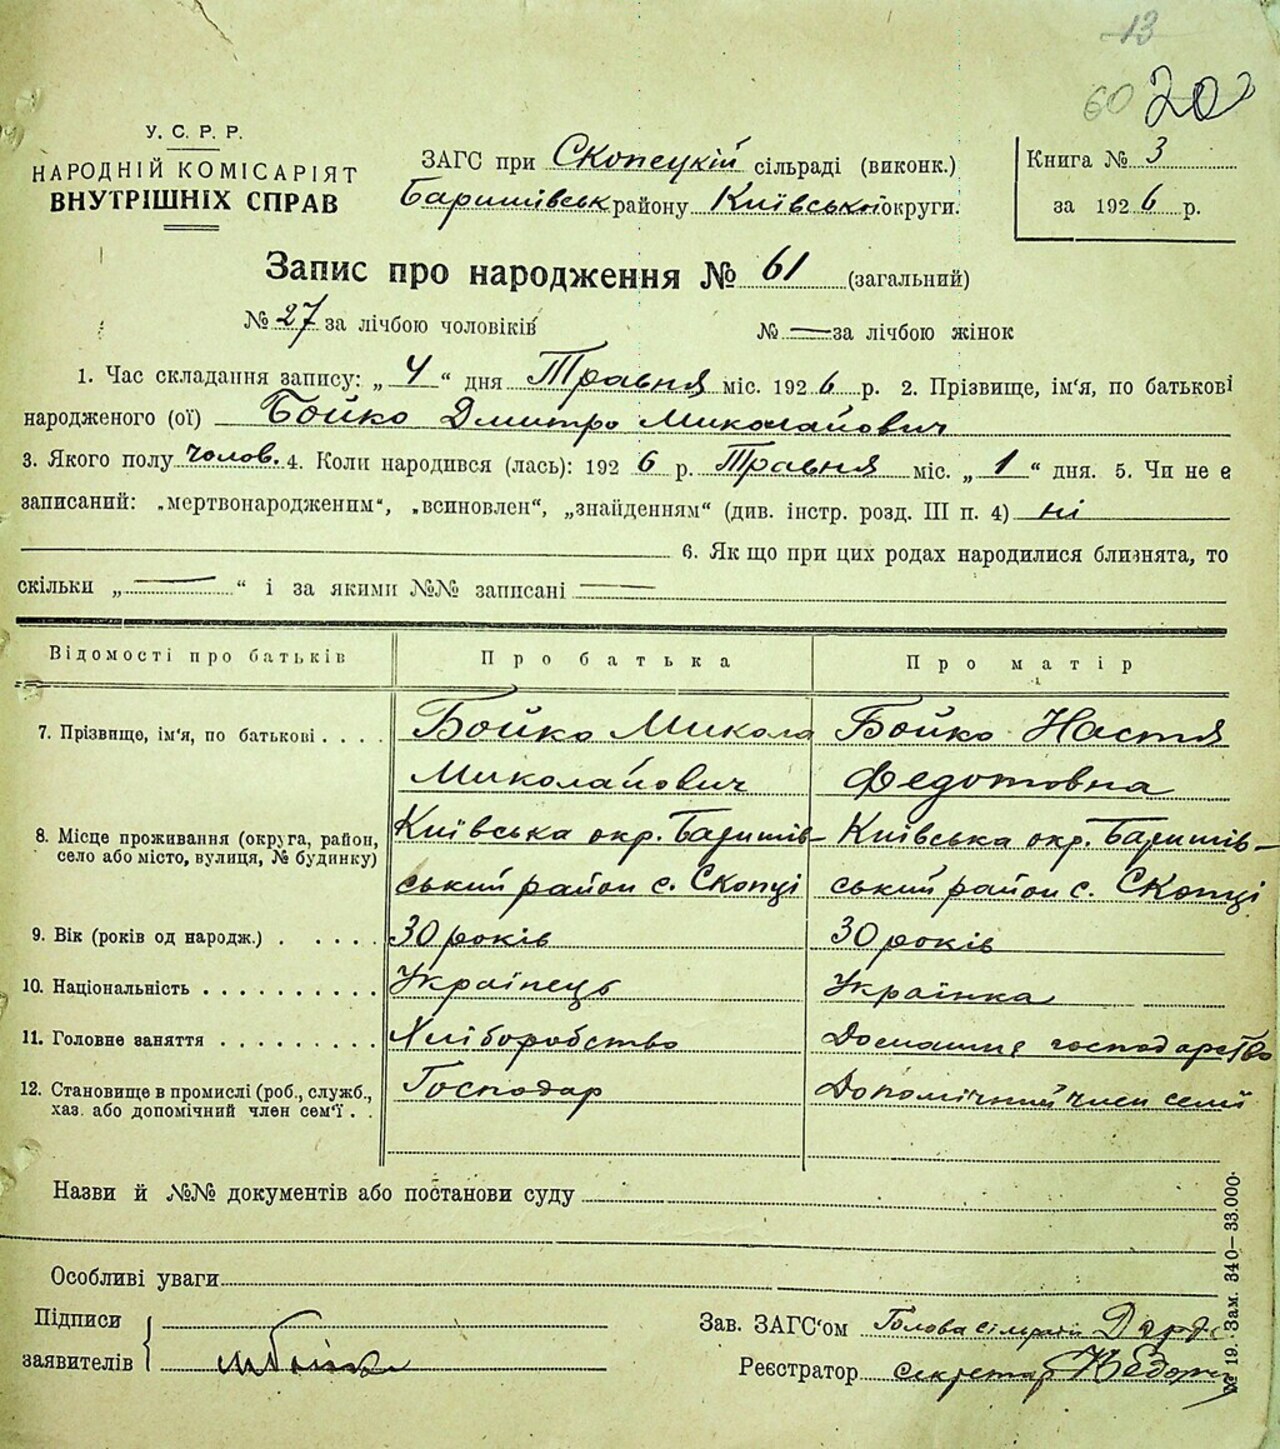 13
60 20
У. С. Р. Р.
НАРОДНІЙ КОМІСАРІЯТ
ВНУТРІШНІХ СПРАВ
ЗАГС при Скопецкій сільраді (виконк.)
Баришівськ району Київської округи.
Книга № 3
за 1926 р.
Запис про народження № 61 (загальний)
№ 27 за лічбою чоловіків № — за лічбою жінок
1. Час складання запису: „ 4 “ дня Травня міс. 1926 р. 2. Прізвище, ім‘я, по батькові
народженого (ої) Бойко Дмитро Миколайович
3. Якого полу чолов. 4. Коли народився (лась): 1926 р. Травня міс. „ 1 “ дня. 5. Чи не є
записаний: „мертвонародженим“, „всиновлен“, „знайденням“ (див. інстр. розд. III п. 4) ні
6. Як що при цих родах народилися близнята, то
скільки „ — “ і за якими №№ записані —
Відомості про батьків Про батька Про матір
7. Прізвище, ім‘я, по батькові . . . . Бойко Микола Бойко Настя
Миколайович Федотовна
8. Місце проживання (округа, район, село або місто, вулиця, № будинку) Київська окр. Баришів- Київська окр. Баришів-
ський район с. Скопці ський район с. Скопці
9. Вік (років од народж.) . . . . . 30 років 30 років
10. Національність . . . . . . . . . . Українець Українка
11. Головне заняття . . . . . . . . . Хліборобство Домашнє господарство
12. Становище в промислі (роб., служб., Господар Допомічний член семї
хаз. або допомічний член сем‘ї . .
Назви й №№ документів або постанови суду
Особливі уваги
Підписи
заявителів
Зав. ЗАГС‘ом Голова сільради
Реєстратор секретар
№ 19. Зам. 340—33.000.